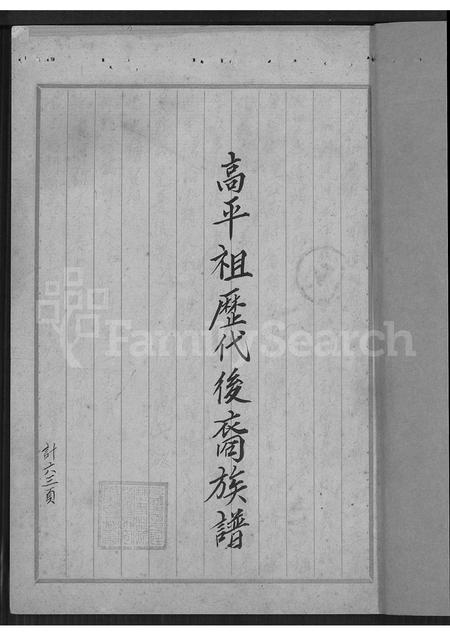 高平祖歷代後裔族譜
計六三頁
FamilySearch